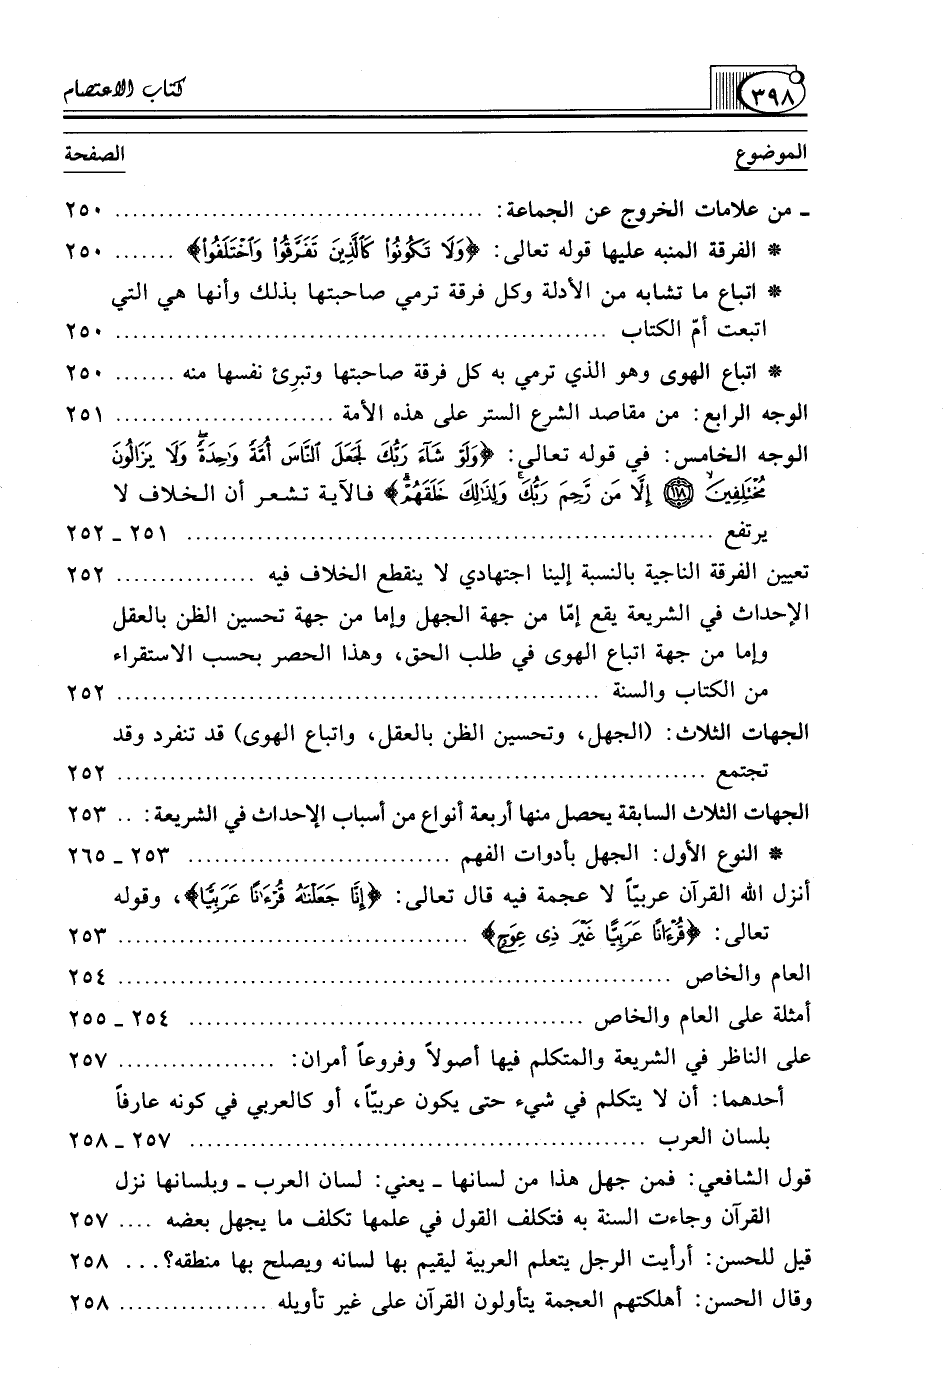 ٣٩٨ كتاب الاعتصام
الموضوع الصفحة
ـ من علامات الخروج عن الجماعة: ........................................ ٢٥٠
* الفرقة المنبه عليها قوله تعالى: ﴿وَلَا تَكُونُوا۟ كَٱلَّذِينَ تَفَرَّقُوا۟ وَٱخْتَلَفُوا۟﴾ ....... ٢٥٠
* اتباع ما تشابه من الأدلة وكل فرقة ترمي صاحبتها بذلك وأنها هي التي
اتبعت أمّ الكتاب ........................................................ ٢٥٠
* اتباع الهوى وهو الذي ترمي به كل فرقة صاحبتها وتبرئ نفسها منه ....... ٢٥٠
الوجه الرابع: من مقاصد الشرع الستر على هذه الأمة ......................... ٢٥١
الوجه الخامس: في قوله تعالى: ﴿وَلَوْ شَآءَ رَبُّكَ لَجَعَلَ ٱلنَّاسَ أُمَّةً وَٰحِدَةً ۖ وَلَا يَزَالُونَ
مُخْتَلِفِينَ ۙ ١١٨ إِلَّا مَن رَّحِمَ رَبُّكَ ۚ وَلِذَٰلِكَ خَلَقَهُمْ ۗ﴾ فالآية تشعر أن الخلاف لا
يرتفع ............................................................ ٢٥١ ـ ٢٥٢
تعيين الفرقة الناجية بالنسبة إلينا اجتهادي لا ينقطع الخلاف فيه ................ ٢٥٢
الإحداث في الشريعة يقع إمّا من جهة الجهل وإما من جهة تحسين الظن بالعقل
وإما من جهة اتباع الهوى في طلب الحق، وهذا الحصر بحسب الاستقراء
من الكتاب والسنة ...................................................... ٢٥٢
الجهات الثلاث: (الجهل، وتحسين الظن بالعقل، واتباع الهوى) قد تنفرد وقد
تجتمع .................................................................. ٢٥٢
الجهات الثلاث السابقة يحصل منها أربعة أنواع من أسباب الإحداث في الشريعة: .. ٢٥٣
* النوع الأول: الجهل بأدوات الفهم .............................. ٢٥٣ ـ ٢٦٥
أنزل الله القرآن عربيّاً لا عجمة فيه قال تعالى: ﴿إِنَّا جَعَلْنَٰهُ قُرْءَٰنًا عَرَبِيًّا﴾، وقوله
تعالى: ﴿قُرْءَانًا عَرَبِيًّا غَيْرَ ذِى عِوَجٍ﴾ ...................................... ٢٥٣
العام والخاص ............................................................ ٢٥٤
أمثلة على العام والخاص ............................................ ٢٥٤ ـ ٢٥٥
على الناظر في الشريعة والمتكلم فيها أصولاً وفروعاً أمران: .................. ٢٥٧
أحدهما: أن لا يتكلم في شيء حتى يكون عربيّاً، أو كالعربي في كونه عارفاً
بلسان العرب .................................................. ٢٥٧ ـ ٢٥٨
قول الشافعي: فمن جهل هذا من لسانها ـ يعني: لسان العرب ـ وبلسانها نزل
القرآن وجاءت السنة به فتكلف القول في علمها تكلف ما يجهل بعضه .... ٢٥٧
قيل للحسن: أرأيت الرجل يتعلم العربية ليقيم بها لسانه ويصلح بها منطقه؟... ٢٥٨
وقال الحسن: أهلكتهم العجمة يتأولون القرآن على غير تأويله ................. ٢٥٨